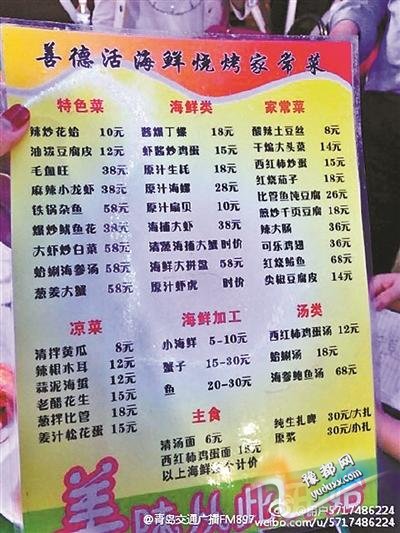 善德活海鲜烧烤家常菜
特色菜
辣炒花蛤 10元
油泼豆腐皮 12元
毛血旺 38元
麻辣小龙虾 38元
铁锅杂鱼 58元
爆炒鱿鱼花 38元
大虾炒白菜 58元
蛤蜊海参汤 58元
葱姜大蟹 58元
海鲜类
酱爆丁螺 18元
虾酱炒鸡蛋 15元
原汁生蚝 18元
原汁海螺 28元
原汁扇贝 10元
海捕大虾 38元
清蒸海捕大蟹 时价
海鲜大拼盘 58元
原汁虾虎 时价
家常菜
酸辣土豆丝 8元
干煸大头菜 14元
西红柿炒蛋 15元
红烧茄子 18元
比管鱼炖豆腐 26元
煎炒千页豆腐 18元
辣大肠 36元
可乐鸡翅 36元
红烧鲅鱼 68元
尖椒豆腐皮 14元
凉菜
清拌黄瓜 8元
辣根木耳 12元
蒜泥海蜇 12元
老醋花生 15元
葱拌比管 18元
姜汁松花蛋 15元
海鲜加工
小海鲜 5-10元
蟹子 15-30元
鱼 20-30元
汤类
西红柿鸡蛋汤 12元
蛤蜊汤 18元
海参鲍鱼汤 68元
主食
清汤面 6元
西红柿鸡蛋面 15元
以上海鲜按个计价
纯生扎啤 30元/大扎
原浆 30元/小扎
美味从此
豫都网
yuduxx.com
@青岛交通广播FM897
@用户5717486224
weibo.com/u/5717486224